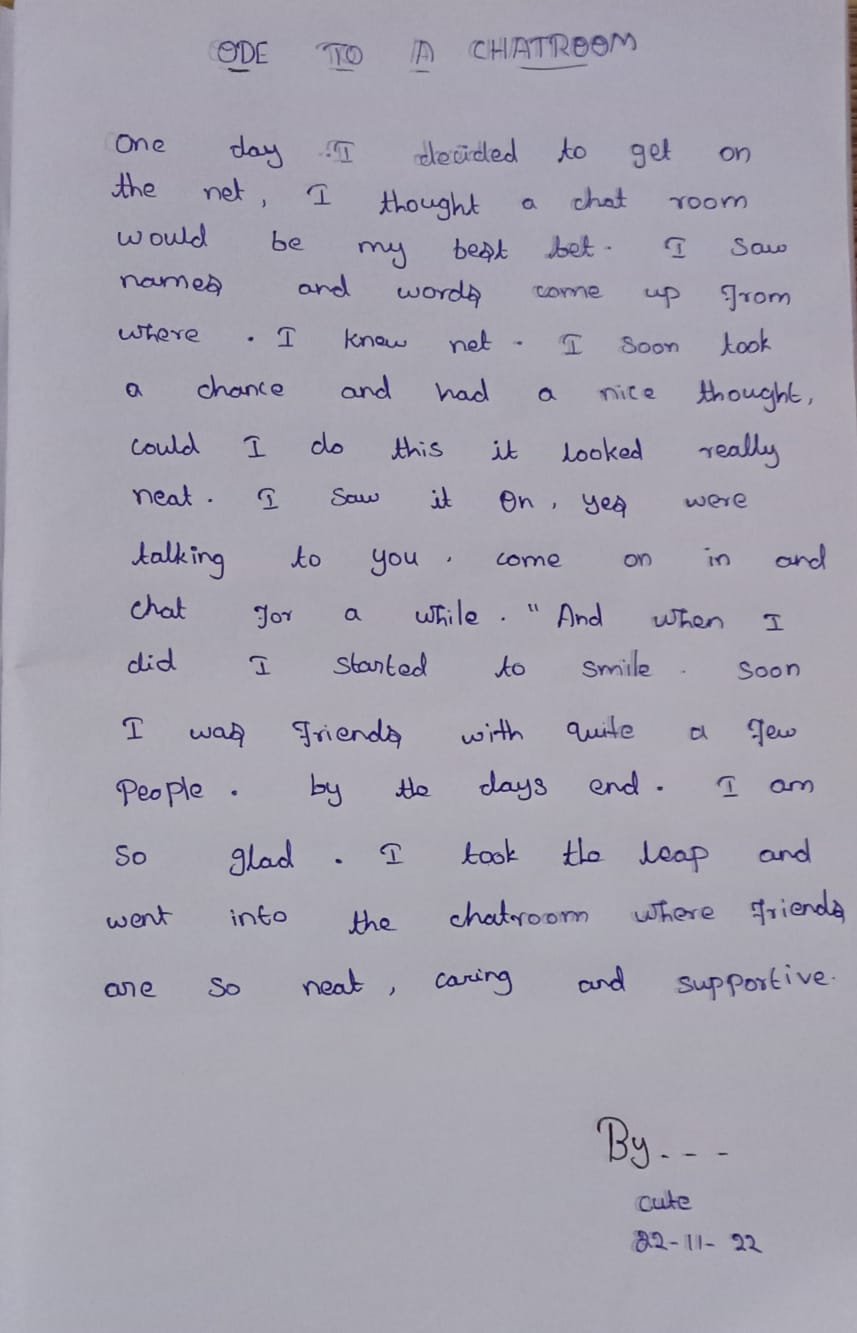 ODE TO A CHATROOM
One day I decided to get on
the net, I thought a chat room
would be my best bet. I saw
names and words come up from
where . I knew net . I soon took
a chance and had a nice thought,
could I do this it looked really
neat. I saw it on, yes were
talking to you . come on in and
chat for a while. "And when I
did I started to smile. soon
I was friends with quite a few
people . by the days end . I am
so glad . I took the leap and
went into the chatroom where friends
are so neat, caring and supportive.
By---
cute
22-11-22